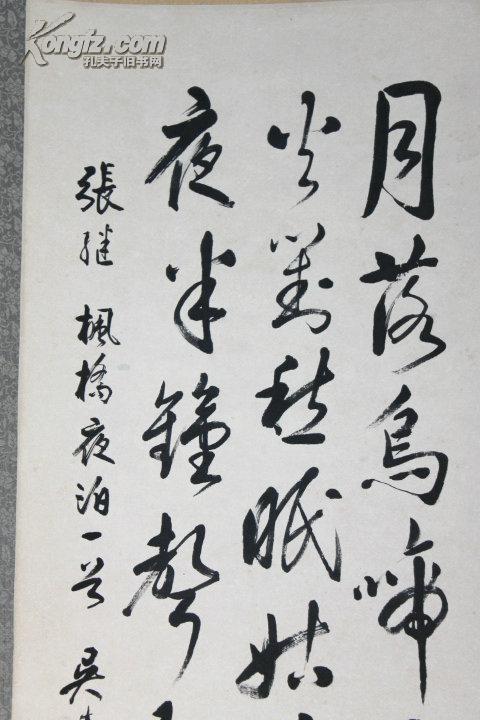 Kongfz.com
孔夫子旧书网
月落烏啼
火對愁眠姑
夜半鐘聲
張継 楓橋夜泊一首 吳